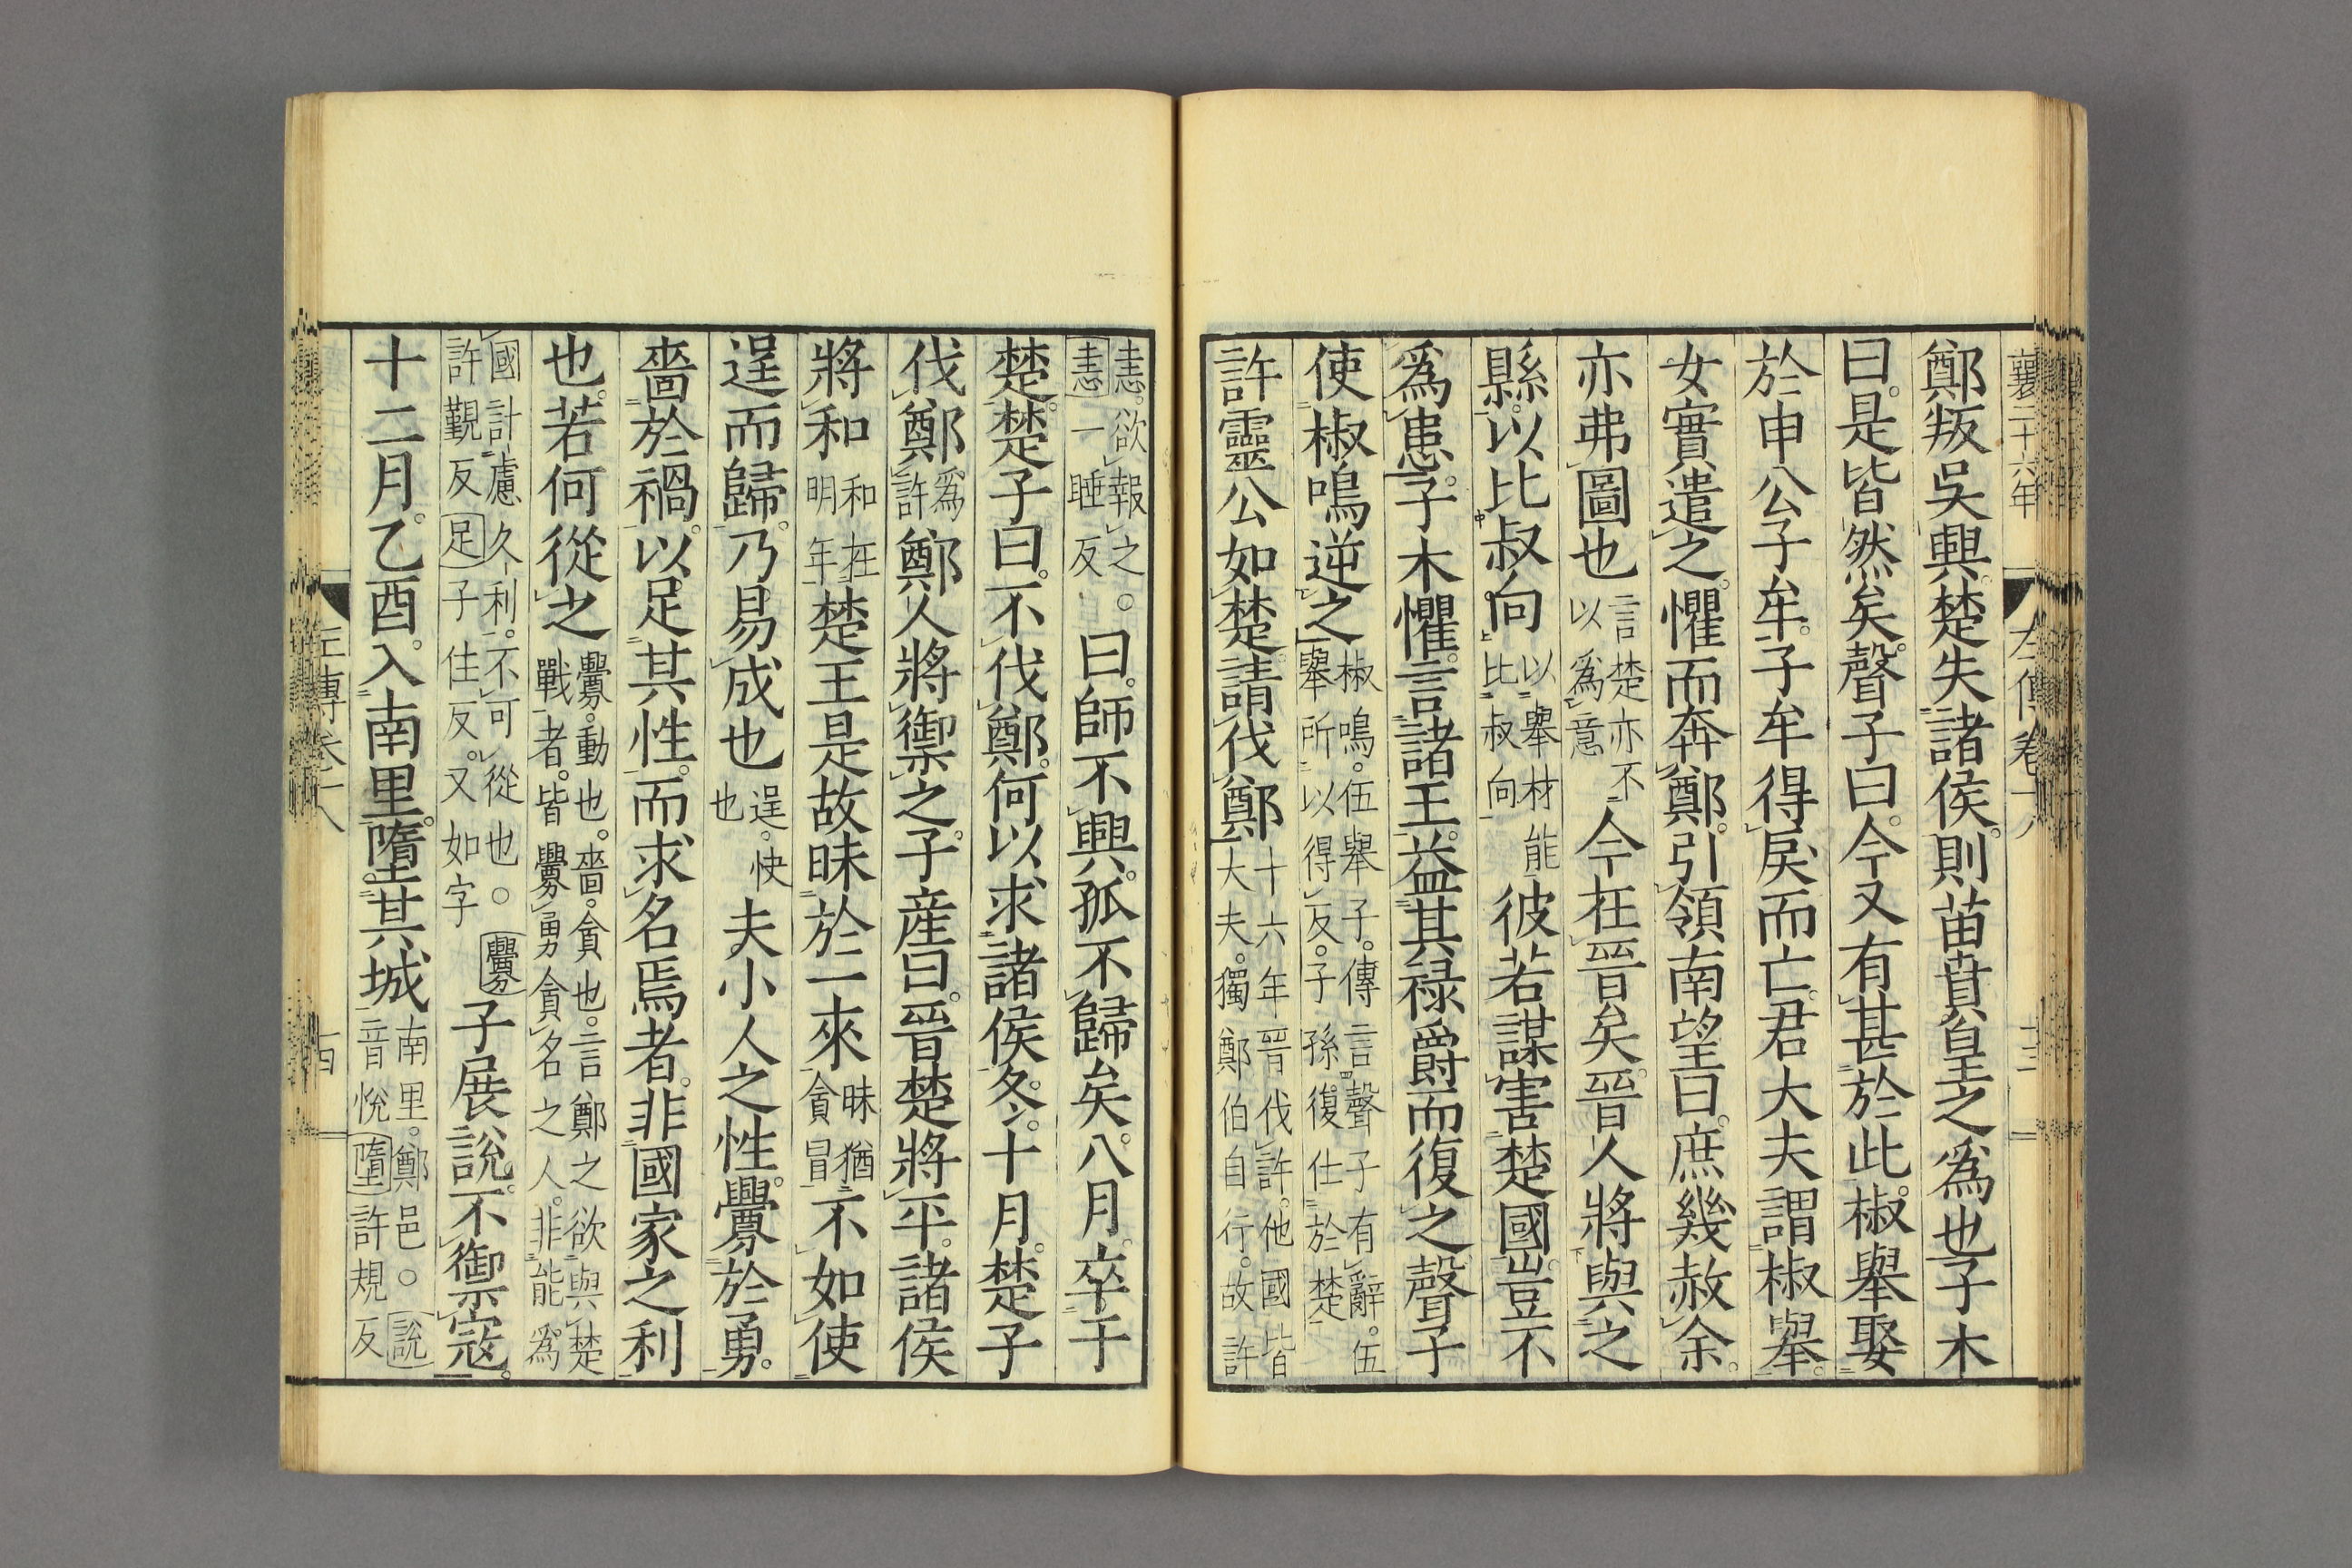 襄二十六年
左傳卷十八
十三
鄭叛吳興楚失諸侯則苗賁皇之爲也子木
曰是皆然矣聲子曰今又有甚於此椒舉娶
於申公子牟子牟得戾而亡君大夫謂椒舉
女實遣之懼而奔鄭引領南望曰庶幾赦余
亦弗圖也言楚亦不以爲意今在晉矣晉人將與之
縣以比叔向以舉材能比叔向彼若謀害楚國豈不
爲患子木懼言諸王益其祿爵而復之聲子
使椒鳴逆之椒鳴伍舉子傳言聲子有辭伍舉所以得反子孫復仕於楚
許靈公如楚請伐鄭十六年晉伐許他國皆大夫獨鄭伯自行故許
恚欲報之○恚一睡反曰師不興孤不歸矣八月卒于
楚楚子曰不伐鄭何以求諸侯冬十月楚子
伐鄭爲許鄭人將禦之子產曰晉楚將平諸侯
將和和在明年楚王是故昧於一來昧猶貪冒不如使
逞而歸乃易成也逞快也夫小人之性釁於勇
嗇於禍以足其性而求名焉者非國家之利
也若何從之釁動也嗇貪也言鄭之欲與楚戰者皆釁勇貪名之人非能爲
國計慮久利不可從也○釁許覲反足子住反又如字子展說不禦寇
十二月乙酉入南里墮其城南里鄭邑○說音悅墮許規反
左傳卷十八
十四